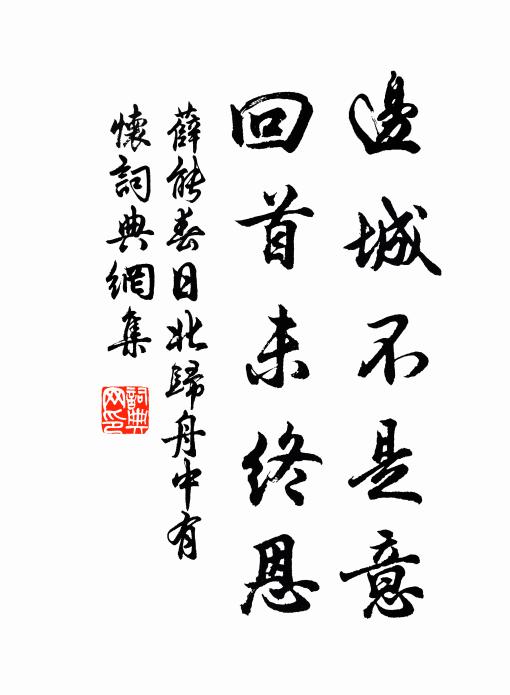 邊城不是意
回首未終恩
薛能春日北歸舟中有
懷詞典網集
詞典网印